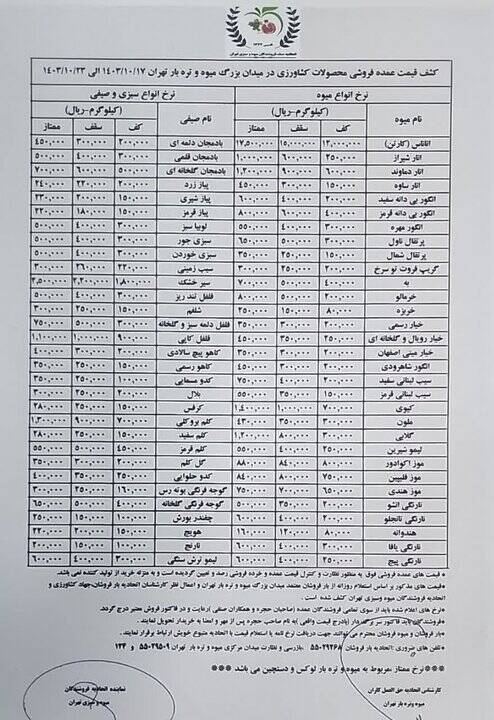 کشف قیمت عمده فروشی محصولات کشاورزی در میدان بزرگ میوه و تره بار تهران ۱۴۰۳/۱۰/۱۷ الی ۱۴۰۳/۱۰/۲۳
نرخ انواع میوه نرخ انواع سبزی و صیفی
نام میوه (کیلوگرم-ریال) نام صیفی (کیلوگرم-ریال)
کف سقف ممتاز کف سقف ممتاز
آناناس (کارتن) ۱۲,۰۰۰,۰۰۰ ۱۵,۰۰۰,۰۰۰ ۱۷,۵۰۰,۰۰۰ بادمجان دلمه ای ۲۰۰,۰۰۰ ۳۰۰,۰۰۰ ۴۵۰,۰۰۰
انار شیراز ۲۵۰,۰۰۰ ۶۰۰,۰۰۰ ۱,۰۰۰,۰۰۰ بادمجان قلمی ۳۰۰,۰۰۰ ۴۰۰,۰۰۰ ۵۰۰,۰۰۰
انار دماوند ۶۰۰,۰۰۰ ۹۰۰,۰۰۰ ۱,۲۰۰,۰۰۰ بادمجان گلخانه ای ۵۰۰,۰۰۰ ۶۰۰,۰۰۰ ۷۰۰,۰۰۰
انار ساوه ۱۵۰,۰۰۰ ۳۰۰,۰۰۰ ۴۵۰,۰۰۰ پیاز زرد ۲۰۰,۰۰۰ ۲۲۰,۰۰۰ ۲۴۰,۰۰۰
انگور بی دانه سفید ۲۰۰,۰۰۰ ۴۰۰,۰۰۰ ۶۰۰,۰۰۰ پیاز شیری ۱۵۰,۰۰۰ ۲۰۰,۰۰۰ ۲۳۰,۰۰۰
انگور بی دانه قرمز ۴۰۰,۰۰۰ ۶۰۰,۰۰۰ ۸۰۰,۰۰۰ پیاز قرمز ۱۵۰,۰۰۰ ۱۸۰,۰۰۰ ۲۲۰,۰۰۰
انگور مهره ۳۰۰,۰۰۰ ۴۰۰,۰۰۰ ۵۵۰,۰۰۰ لوبیا سبز ۳۰۰,۰۰۰ ۴۰۰,۰۰۰ ۵۰۰,۰۰۰
پرتقال ناول ۳۰۰,۰۰۰ ۵۰۰,۰۰۰ ۶۵۰,۰۰۰ سبزی جور ۳۰۰,۰۰۰ ۴۰۰,۰۰۰ ۵۰۰,۰۰۰
پرتقال شمال ۱۵۰,۰۰۰ ۲۵۰,۰۰۰ ۳۵۰,۰۰۰ سبزی خوردن ۳۰۰,۰۰۰ ۴۰۰,۰۰۰ ۵۰۰,۰۰۰
گریپ فروت تو سرخ ۲۰۰,۰۰۰ ۲۵۰,۰۰۰ ۳۰۰,۰۰۰ سیب زمینی ۲۲۰,۰۰۰ ۲۶۰,۰۰۰ ۳۰۰,۰۰۰
به ۴۰۰,۰۰۰ ۵۰۰,۰۰۰ ۷۰۰,۰۰۰ سیر خشک ۱,۸۰۰,۰۰۰ ۲,۲۰۰,۰۰۰ ۲,۵۰۰,۰۰۰
خرمالو ۲۰۰,۰۰۰ ۵۰۰,۰۰۰ ۸۰۰,۰۰۰ فلفل تند ریز ۳۰۰,۰۰۰ ۴۰۰,۰۰۰ ۵۰۰,۰۰۰
خربزه ۸۰,۰۰۰ ۱۵۰,۰۰۰ ۲۵۰,۰۰۰ شلغم ۱۵۰,۰۰۰ ۲۵۰,۰۰۰ ۳۰۰,۰۰۰
خیار رسمی ۲۰۰,۰۰۰ ۳۰۰,۰۰۰ ۳۵۰,۰۰۰ فلفل دلمه سبز و گلخانه ۳۰۰,۰۰۰ ۵۰۰,۰۰۰ ۷۵۰,۰۰۰
خیار رویال و گلخانه ای ۲۵۰,۰۰۰ ۳۵۰,۰۰۰ ۴۵۰,۰۰۰ فلفل کاپی ۹۰۰,۰۰۰ ۱,۰۰۰,۰۰۰ ۱,۱۰۰,۰۰۰
خیار مینی اصفهان ۲۰۰,۰۰۰ ۳۵۰,۰۰۰ کاهو پیچ سالادی ۲۰۰,۰۰۰ ۳۰۰,۰۰۰ ۴۰۰,۰۰۰
انگور شاهرودی ۲۰۰,۰۰۰ ۳۰۰,۰۰۰ ۴۵۰,۰۰۰ کاهو رسمی ۱۵۰,۰۰۰ ۲۵۰,۰۰۰ ۳۵۰,۰۰۰
سیب لبنانی سفید ۲۰۰,۰۰۰ ۴۰۰,۰۰۰ ۷۵۰,۰۰۰ کدو مسمایی ۱۵۰,۰۰۰ ۲۵۰,۰۰۰ ۳۵۰,۰۰۰
سیب لبنانی قرمز ۱۵۰,۰۰۰ ۳۵۰,۰۰۰ ۵۵۰,۰۰۰ بلال ۲۰۰,۰۰۰ ۲۵۰,۰۰۰ ۳۰۰,۰۰۰
کیوی ۷۰۰,۰۰۰ ۱,۰۰۰,۰۰۰ ۱,۴۰۰,۰۰۰ کرفس ۱۵۰,۰۰۰ ۲۵۰,۰۰۰ ۲۸۰,۰۰۰
ملون ۲۰۰,۰۰۰ ۳۵۰,۰۰۰ ۴۳۰,۰۰۰ کلم بروکلی ۷۰۰,۰۰۰ ۹۰۰,۰۰۰ ۱,۳۰۰,۰۰۰
گلابی ۳۰۰,۰۰۰ ۸۰۰,۰۰۰ ۱,۲۰۰,۰۰۰ کلم سفید ۱۵۰,۰۰۰ ۲۵۰,۰۰۰ ۲۸۰,۰۰۰
لیمو شیرین ۲۰۰,۰۰۰ ۴۰۰,۰۰۰ ۵۵۰,۰۰۰ کلم قرمز ۴۰۰,۰۰۰ ۵۰۰,۰۰۰ ۵۵۰,۰۰۰
موز اکوادور ۸۰۰,۰۰۰ ۸۴۰,۰۰۰ ۸۸۰,۰۰۰ گل کلم ۲۰۰,۰۰۰ ۳۰۰,۰۰۰ ۳۵۰,۰۰۰
موز فلیپین ۷۵۰,۰۰۰ ۸۰۰,۰۰۰ ۸۴۰,۰۰۰ کدو حلوایی ۲۵۰,۰۰۰ ۳۵۰,۰۰۰ ۴۰۰,۰۰۰
موز هندی ۶۵۰,۰۰۰ ۷۰۰,۰۰۰ ۷۵۰,۰۰۰ گوجه فرنگی بوته رس ۱۶۰,۰۰۰ ۲۵۰,۰۰۰ ۳۰۰,۰۰۰
نارنگی انشو ۲۰۰,۰۰۰ ۳۵۰,۰۰۰ ۵۰۰,۰۰۰ گوجه فرنگی گلخانه ۴۰۰,۰۰۰ ۵۰۰,۰۰۰ ۶۵۰,۰۰۰
نارنگی تانجلو ۲۰۰,۰۰۰ ۴۰۰,۰۰۰ ۶۰۰,۰۰۰ چغندر بورش ۱۰۰,۰۰۰ ۱۵۰,۰۰۰ ۲۵۰,۰۰۰
هندوانه ۸۰,۰۰۰ ۱۲۰,۰۰۰ ۱۶۰,۰۰۰ هویج ۱۵۰,۰۰۰ ۲۰۰,۰۰۰ ۲۲۰,۰۰۰
نارنگی یافا ۳۰۰,۰۰۰ ۴۰۰,۰۰۰ ۶۰۰,۰۰۰ نارنج ۱۰۰,۰۰۰ ۱۵۰,۰۰۰ ۲۰۰,۰۰۰
نارنگی پیج ۲۵۰,۰۰۰ ۴۰۰,۰۰۰ ۶۰۰,۰۰۰ لیمو ترش سنگی ۳۰۰,۰۰۰ ۴۰۰,۰۰۰ ۶۰۰,۰۰۰
* قیمت های عمده فروشی فوق به منظور نظارت و کنترل قیمت عمده و خرده فروشی رصد و تعیین گردیده است و به منزله خرید از تولید کننده نمی باشد.
*قیمت های مذکور بر اساس استعلام روزانه از بار فروشان معتمد میدان بزرگ میوه و تره بار تهران و اعمال نظر کارشناسان اتحادیه بارفروشان،جهاد کشاورزی و
اتحادیه فروشندگان میوه وسبزی تهران کشف شده است.
*نرخ های اعلام شده باید از سوی تمامی فروشندگان عمده (صاحبین حجره و همکاران صنفی )رعایت و در فاکتور فروش معتبر درج گردد.
*فروشندگان باید فاکتور سر برگ دار (بادرج قیمت واقعی )به نام صاحب حجره پس از مهر و امضا به خریدار تحویل نمایند.
*بارفروشان و میوه فروشان محترم می توانند جهت دریافت نرخ نامه یا استعلام قیمت با اتحادیه متبوع خویش ارتباط برقرار نمایند.
*تلفن های ضروری: اتحادیه بارفروشان ۵۵۰۲۹۲۶۸ ،بازرسی و نظارت میدان مرکزی میوه و تره بار تهران ۵۵۰۲۹۵۰۹ و ۱۲۴
***نرخ ممتاز ،مربوط به میوه و تره بار لوکس و دستچین می باشد ***
کارشناسی اتحادیه حق العمل کاران نماینده اتحادیه فروشندگان
میوه وتره بار فروشان تهران میوه و سبزی تهران